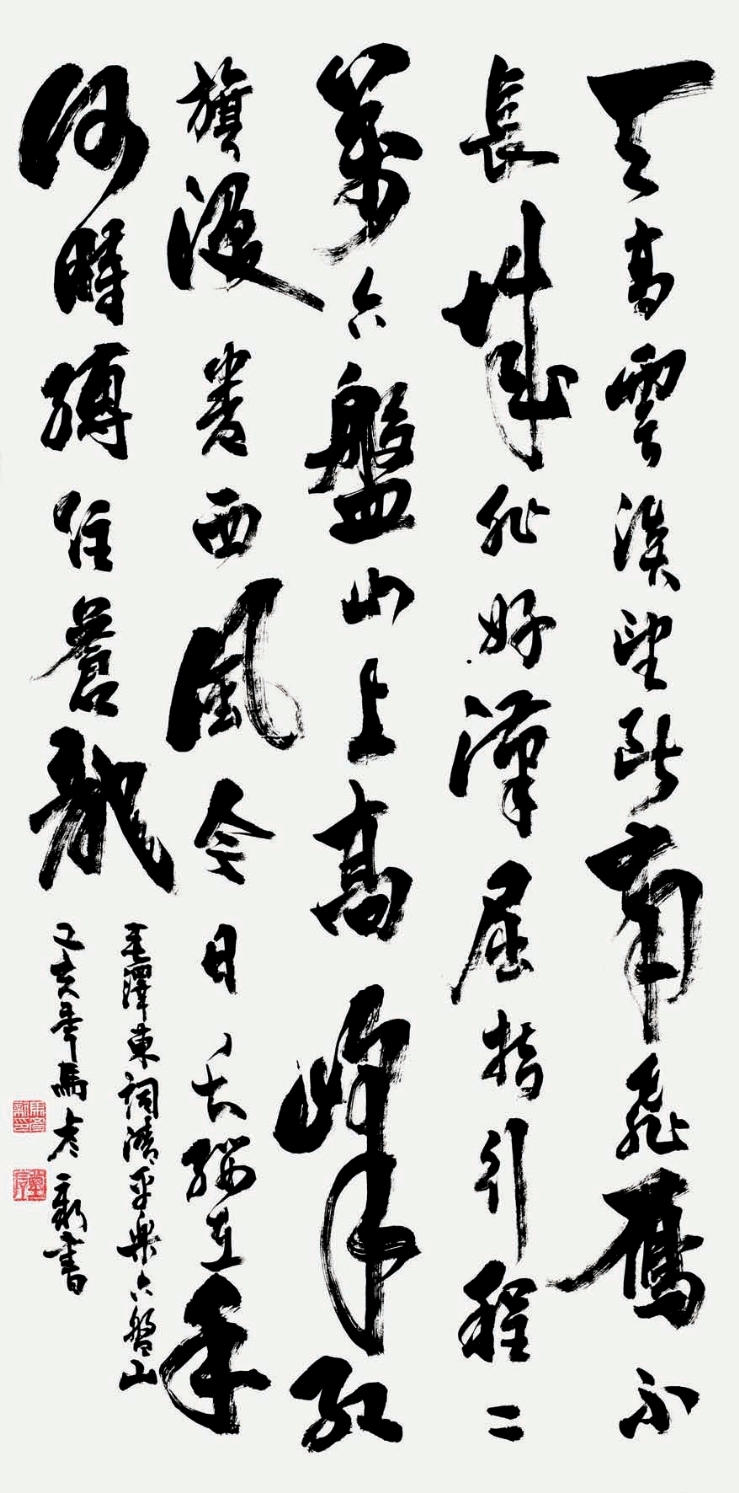 天高雲淡望斷南飛雁不
長城非好漢屈指行程二
萬六盤山上高峰紅
旗漫卷西風今日長纓在手
何時縛住蒼龍
毛澤東詞清平樂六盤山
己亥年馬彥書